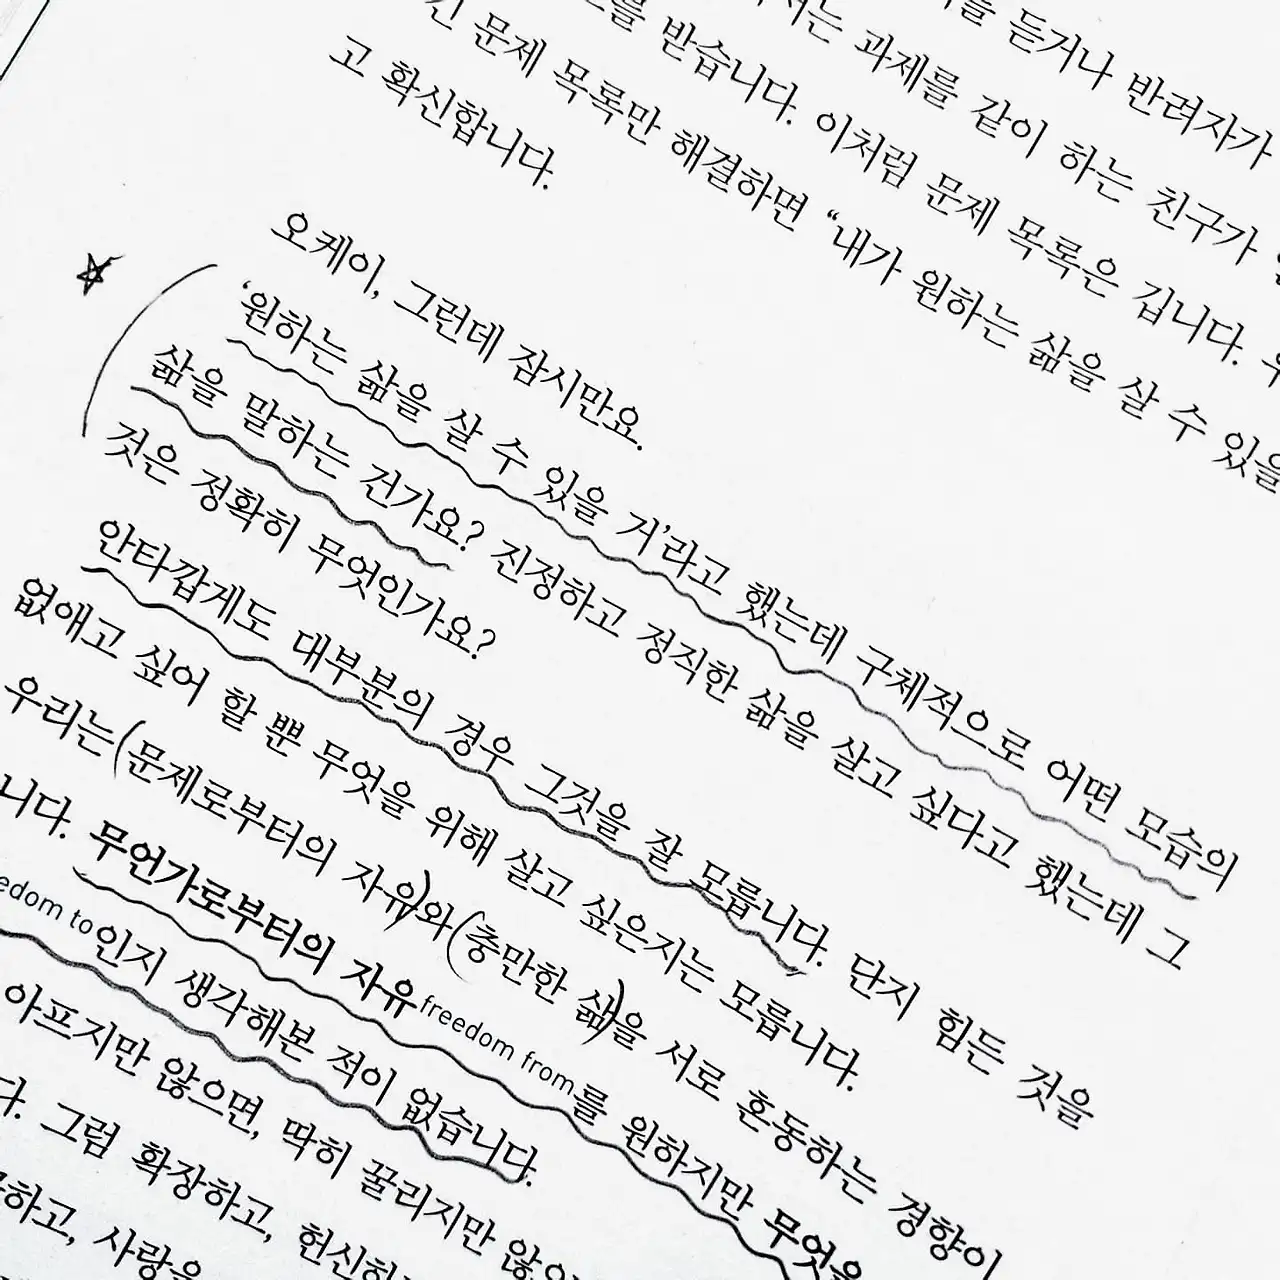 듣거나 반려자가
는 과제를 같이 하는 친구가
를 받습니다. 이처럼 문제 목록은 깁니다.
긴 문제 목록만 해결하면 “내가 원하는 삶을 살 수 있을
고 확신합니다.
오케이, 그런데 잠시만요.
‘원하는 삶을 살 수 있을 거’라고 했는데 구체적으로 어떤 모습의
삶을 말하는 건가요? 진정하고 정직한 삶을 살고 싶다고 했는데 그
것은 정확히 무엇인가요?
안타깝게도 대부분의 경우 그것을 잘 모릅니다. 단지 힘든 것을
없애고 싶어 할 뿐 무엇을 위해 살고 싶은지는 모릅니다.
우리는 (문제로부터의 자유)와 (충만한 삶)을 서로 혼동하는 경향이
니다. 무언가로부터의 자유freedom from를 원하지만 무엇을
edom to인지 생각해본 적이 없습니다.
아프지만 않으면, 딱히 꿀리지만 않으
다. 그럼 확장하고, 헌신하
하고, 사랑을